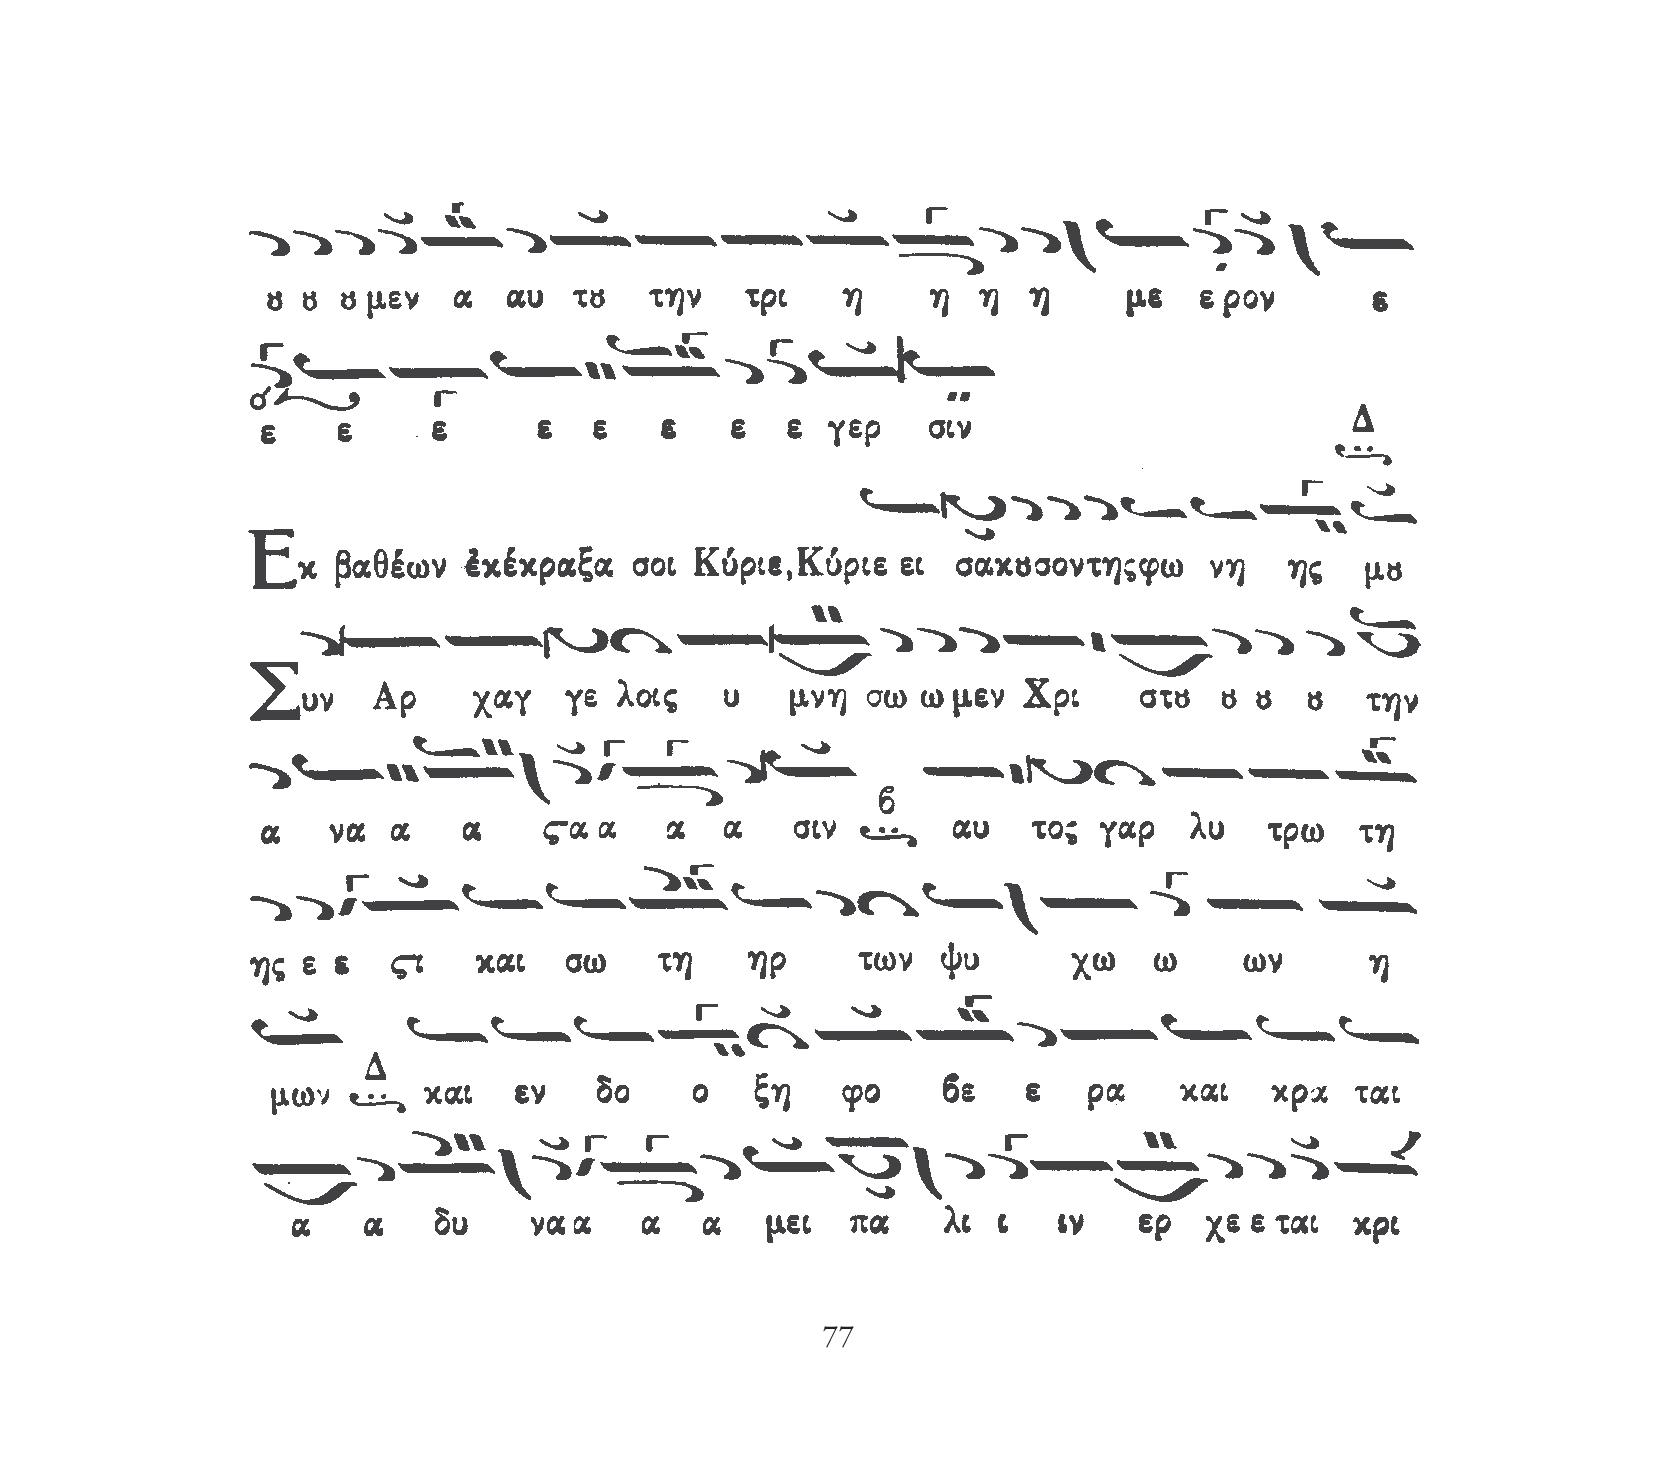 ȣ ȣ ȣ μεν α αυ τȣ την τρι η η η η με ε ρον ε
ε ε ε ε ε ε ε ε γερ σιν
Δ
Εκ βαθέων ἐκέκραξα σοι Κύριε, Κύριε ει σακȣσοντηςφω νη ης μȣ
Συν Αρ χαγ γε λοις υ μνη σω ω μεν Χρι στȣ ȣ ȣ ȣ την
α να α α ϛα α α α σιν β αυ τος γαρ λυ τρω τη
ης ε ε ϛι και σω τη ηρ των ψυ χω ω ων η
μων Δ και εν δο ο ξη φο βε ε ρα και κρα ται
α α δυ να α α α μει πα λι ι ιν ερ χε ε ται κρι
77